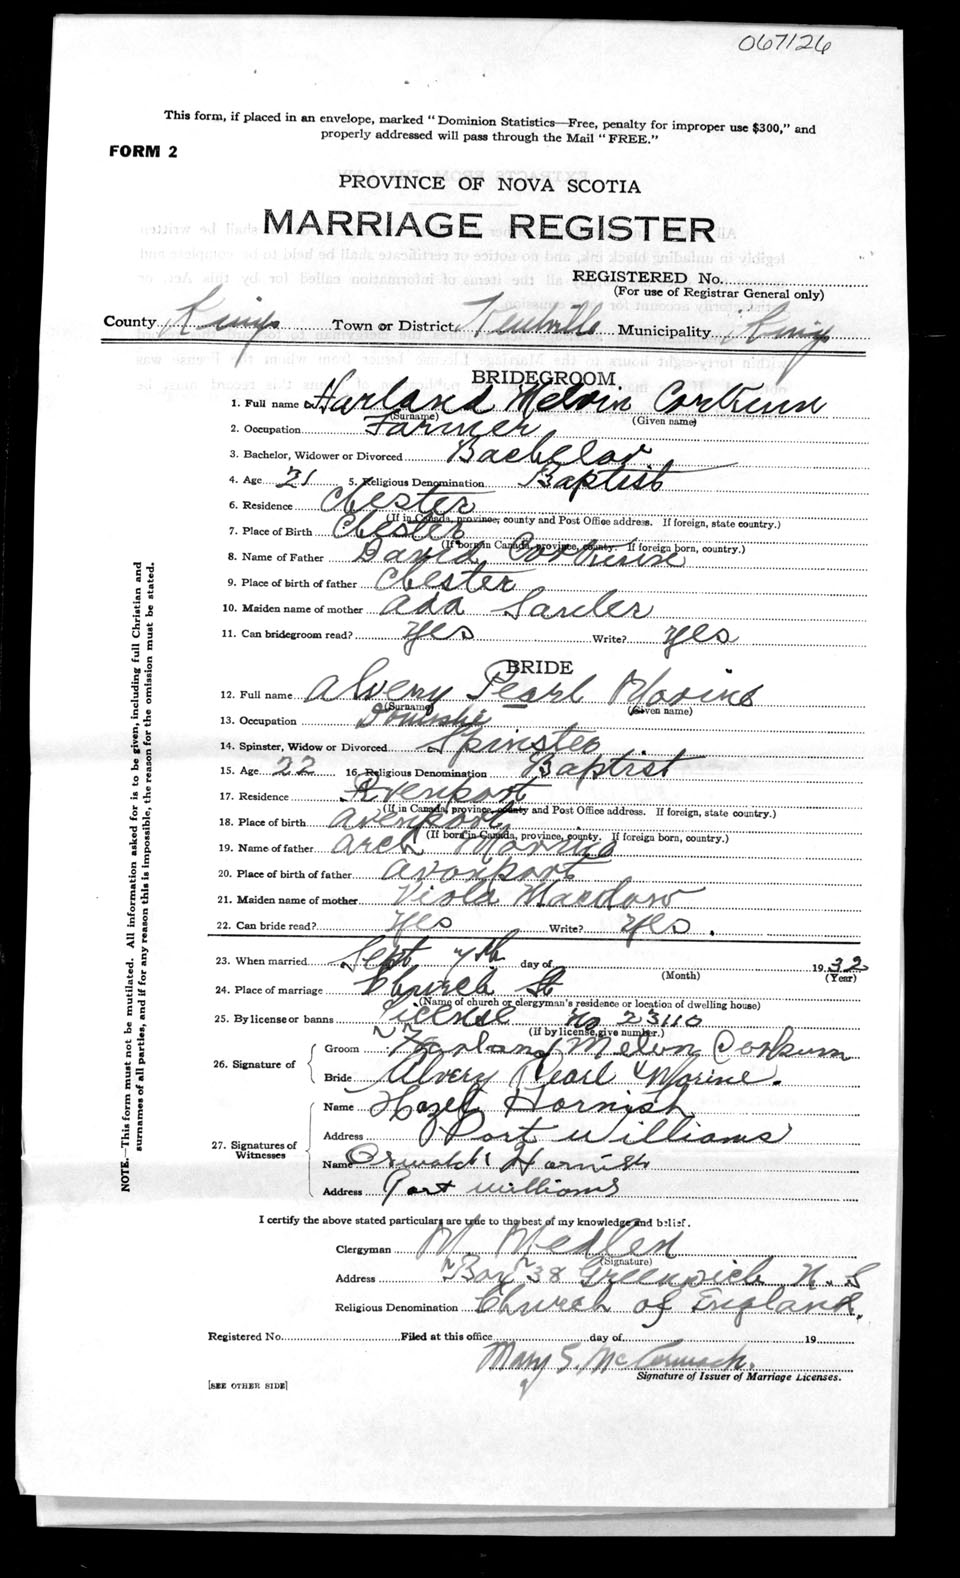 067126
This form, if placed in an envelope, marked "Dominion Statistics—Free, penalty for improper use $300," and
properly addressed will pass through the Mail "FREE."
FORM 2
PROVINCE OF NOVA SCOTIA
MARRIAGE REGISTER
REGISTERED No.
(For use of Registrar General only)
County Kings Town or District Kentville Municipality Kings
BRIDEGROOM
1. Full name Harland Melvin Corkum
(Surname) (Given name)
2. Occupation Farmer
3. Bachelor, Widower or Divorced Bachelor
4. Age 21 5. Religious Denomination Baptist
6. Residence Chester
(If in Canada, province, county and Post Office address. If foreign, state country.)
7. Place of Birth Chester
(If born in Canada, province, county. If foreign born, country.)
8. Name of Father David Corkum
9. Place of birth of father Chester
10. Maiden name of mother Ada
11. Can bridegroom read? Yes Write? Yes
BRIDE
12. Full name Alvery Pearl Marine
(Surname) (Given name)
13. Occupation
14. Spinster, Widow or Divorced Spinster
15. Age 22 16. Religious Denomination Baptist
17. Residence Avenport
(If in Canada, province, county and Post Office address. If foreign, state country.)
18. Place of birth Avenport
(If born in Canada, province, county. If foreign born, country.)
19. Name of father Arch
20. Place of birth of father Avonport
21. Maiden name of mother Viola
22. Can bride read? Yes Write? Yes.
23. When married Sept 7th day of 1932
(Month) (Year)
24. Place of marriage Church St
(Name of church or clergyman's residence or location of dwelling house)
25. By license or banns License No 23110
(If by license, give number.)
26. Signature of
Groom Harland Melvin Corkum
Bride Alvery Pearl Marine.
27. Signatures of Witnesses
Name Hazel Harnish
Address Port Williams
Name Oswald Harnish
Address Port Williams
I certify the above stated particulars are true to the best of my knowledge and belief.
Clergyman M. Medlen
(Signature)
Address Box 38 Greenwich N.S
Religious Denomination Church of England.
Registered No. Filed at this office day of 19
Mary S. McCormack.
Signature of Issuer of Marriage Licenses.
[SEE OTHER SIDE]
NOTE.—This form must not be mutilated. All information asked for is to be given, including full Christian and
surnames of all parties, and if for any reason this is impossible, the reason for the omission must be stated.